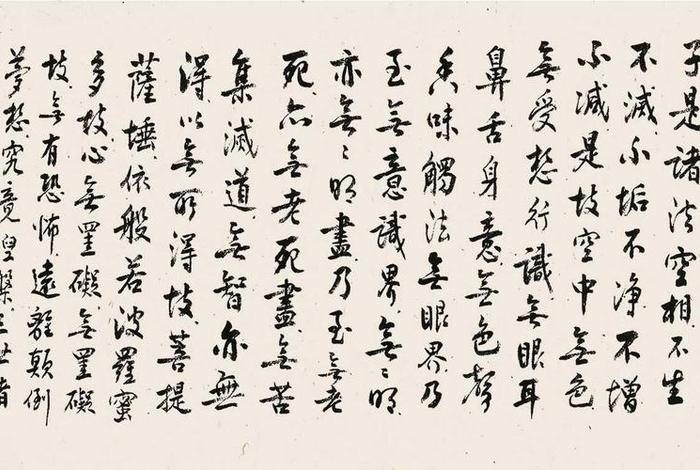 子是諸法空相不生
不滅不垢不净不增
不減是故空中無色
無受想行識無眼耳
鼻舌身意無色聲
香味觸法無眼界乃
至無意識界無〻明
亦無〻明盡乃至無老
死亦無老死盡無苦
集滅道無智亦無
得以無所得故菩提
薩埵依般若波羅蜜
多故心無罣礙無罣礙
故無有恐怖遠離顛倒
夢想究竟涅槃三世諸